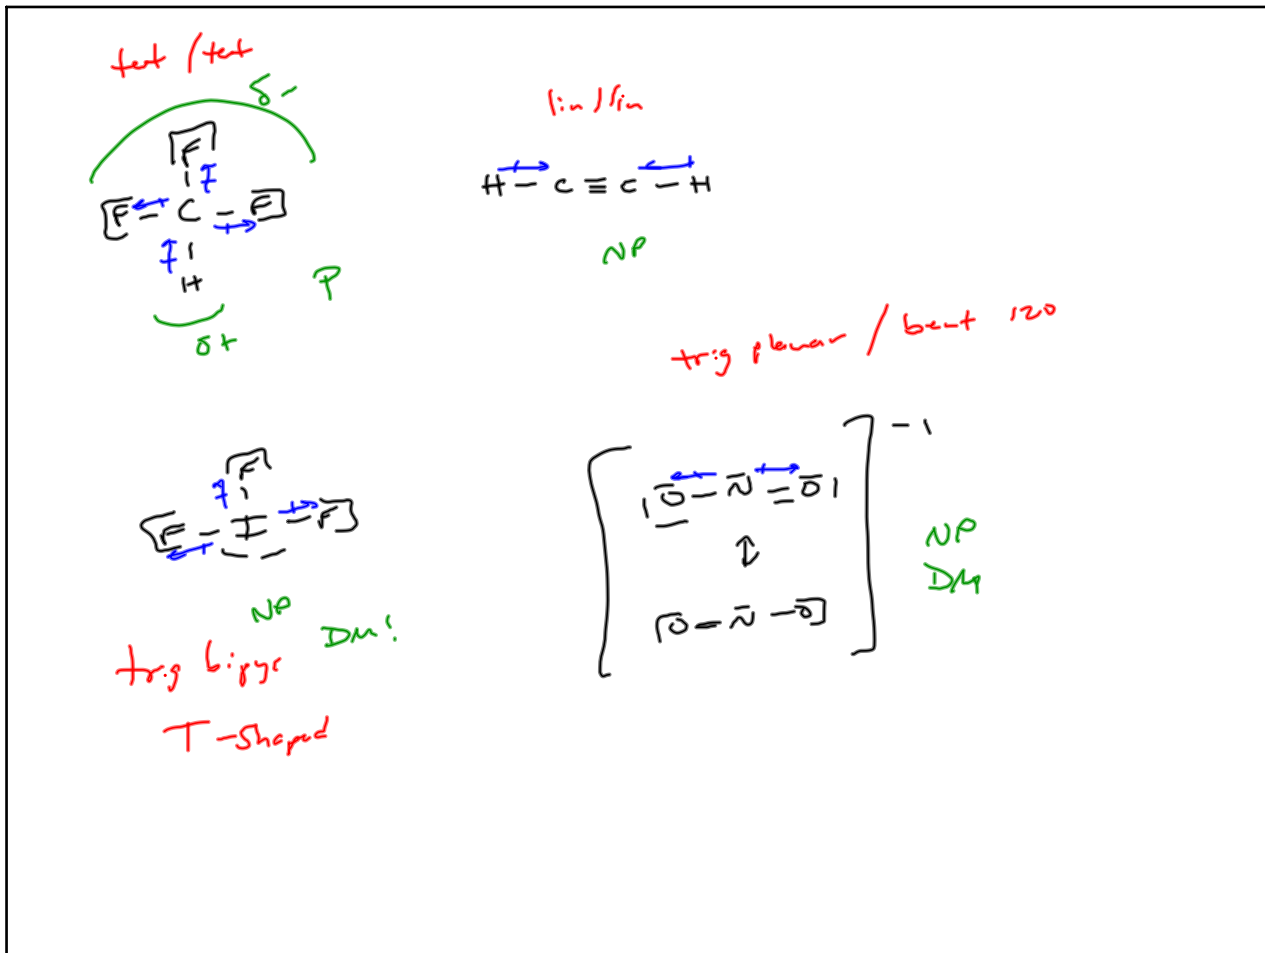 tet / tet
δ-
F
F - C - F
H
δ+
P
lin / lin
H - C ≡ C - H
NP
trig planar / bent 120
F
F - I - F
NP
DM!
trig bipyr
T-shaped
-1
O - N = O
↕
O = N - O
NP
DM